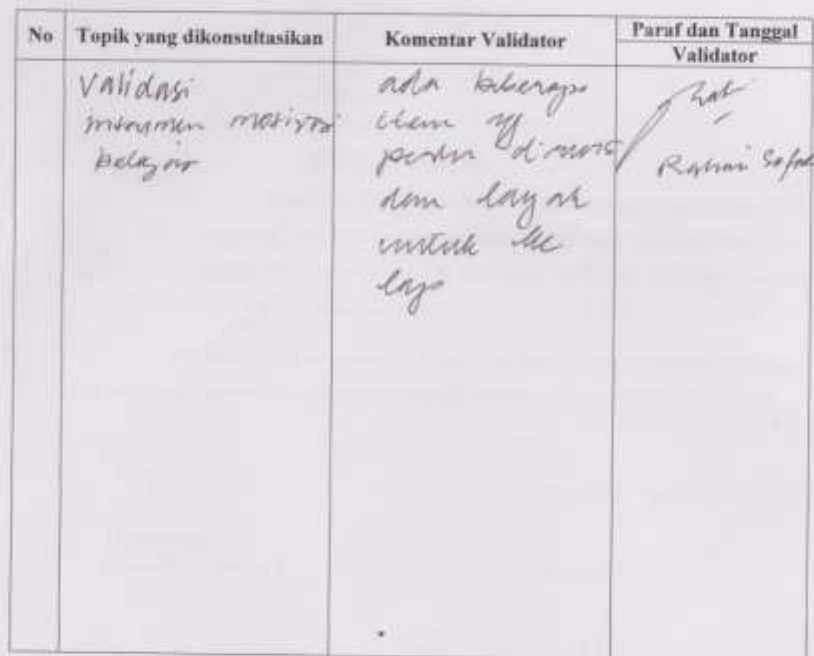 No Topik yang dikonsultasikan Komentar Validator Paraf dan Tanggal
Validator
Validasi
instrumen motivasi
belajar
ada beberapa
item yg
perlu
dan layak
untuk ke